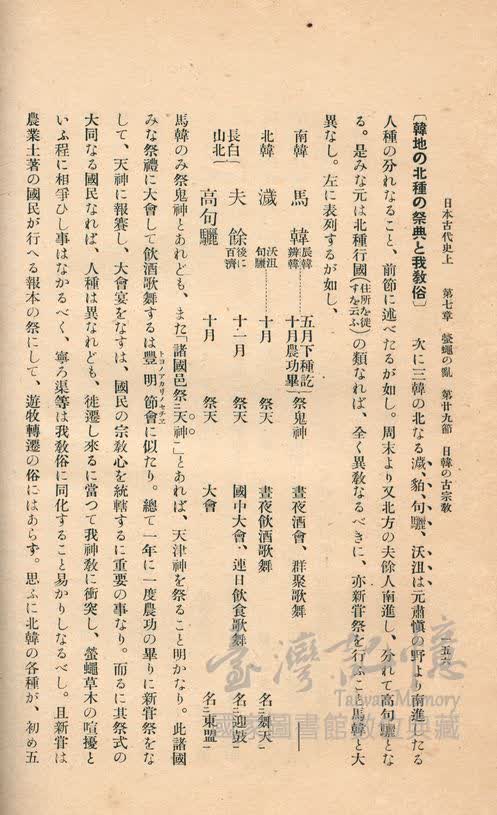 日本古代史上　第七章　螢蠅の亂　第廿九節　日韓の古宗敎　一五六
〔韓地の北種の祭典と我敎俗〕　次に三韓の北なる濊、貊、句驪、沃沮は元肅愼の野より南進したる
人種の分れなること、前節に述べたるが如し。周末より又北方の夫餘人南進し、分れて高句驪とな
る。是みな元は北種行國（住所を徙すを云ふ）の類なれば、全く異敎なるべきに、亦新甞祭を行ふこと馬韓と大
異なし。左に表列するが如し、
南韓　馬韓（辰韓 辨韓）……五月下種訖 十月農功畢｝祭鬼神　晝夜酒會、群聚歌舞　――
北韓　濊（沃沮 句驪）……十月　祭天　晝夜飮酒歌舞　名「舞天」
長白山北｝夫餘（後に百濟）　十二月　祭天　國中大會、連日飮食歌舞　名「迎鼓」
高句驪　十月　祭天　大會　名「東盟」
馬韓のみ祭鬼神とあれども、また「諸國邑祭ニ天神」とあれば、天津神を祭ること明かなり。此諸國
みな祭禮に大會して飮酒歌舞するは豐明節會トヨノアカリノセチヱに似たり。總て一年に一度農功の畢りに新甞祭をな
して、天神に報賽し、大會宴をなすは、國民の宗敎心を統轄するに重要の事なり。而るに其祭式の
大同なる國民なれば、人種は異なれども、徙遷し來るに當つて我神敎に衝突し、螢蠅草木の喧擾と
いふ程に相爭ひし事はなかるべく、寧ろ渠等は我敎俗に同化すること易かりしなるべし。且新甞は
農業土著の國民が行へる報本の祭にして、遊牧轉遷の俗にはあらず。思ふに北韓の各種が、初め五
臺灣記憶
TaiwanMemory
國家圖書館數位典藏